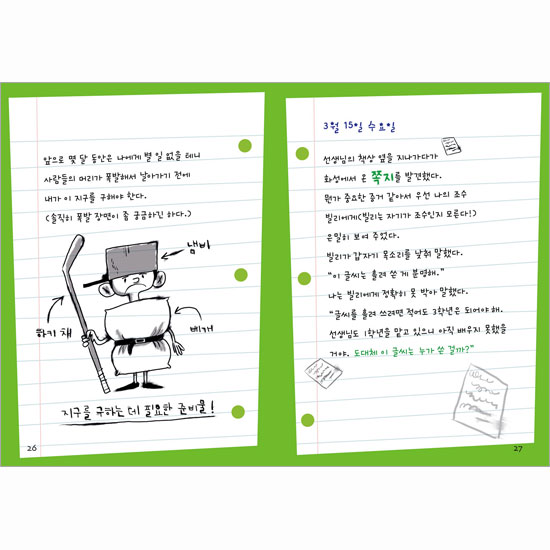 앞으로 몇 달 동안은 나에게 별 일 없을 테니
사람들의 머리가 폭발해서 날아가기 전에
내가 이 지구를 구해야 한다.
(솔직히 폭발 장면이 좀 궁금하긴 하다.)
냄비
하키 채
베개
지구를 구하는 데 필요한 준비물!
26
3월 15일 수요일
선생님의 책상 옆을 지나가다가
화성에서 온 쪽지를 발견했다.
뭔가 중요한 증거 같아서 우선 나의 조수
빌리에게(빌리는 자기가 조수인지 모른다!)
은밀히 보여 주었다.
빌리가 갑자기 목소리를 낮춰 말했다.
"이 글씨는 흘려 쓴 게 분명해."
나는 빌리에게 정확히 못 박아 말했다.
"글씨를 흘려 쓰려면 적어도 3학년은 되어야 해.
선생님도 1학년을 맡고 있으니 아직 배우지 못했을
거야. 도대체 이 글씨는 누가 쓴 걸까?"
27